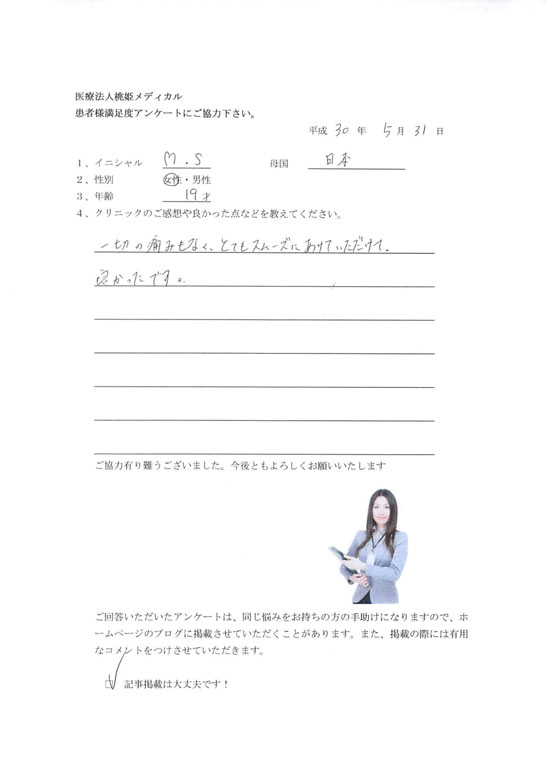 医療法人桃姫メディカル
患者様満足度アンケートにご協力下さい。
平成 30 年 5 月 31 日
1、イニシャル M.S 母国 日本
2、性別 女性・男性
3、年齢 19才
4、クリニックのご感想や良かった点などを教えてください。
一切の痛みもなく、とてもスムーズにあけていただけて、
良かったです。
ご協力有り難うございました。今後ともよろしくお願いいたします
ご回答いただいたアンケートは、同じ悩みをお持ちの方の手助けになりますので、ホ
ームページのブログに掲載させていただくことがあります。また、掲載の際には有用
なコメントをつけさせていただきます。
記事掲載は大丈夫です！